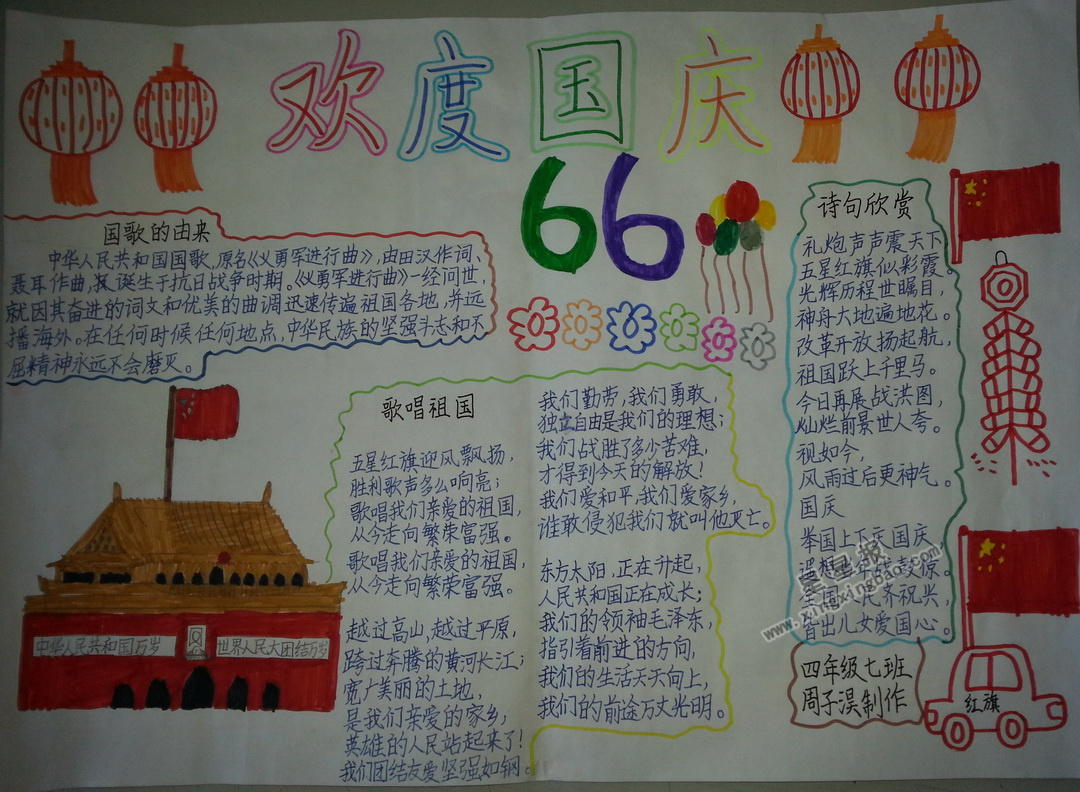 欢度国庆
66
国歌的由来
中华人民共和国国歌,原名《义勇军进行曲》,由田汉作词、
聂耳作曲,诞生于抗日战争时期。《义勇军进行曲》一经问世,
就因其奋进的词文和优美的曲调迅速传遍祖国各地,并远
播海外。在任何时候任何地点,中华民族的坚强斗志和不
屈精神永远不会磨灭。
中华人民共和国万岁
世界人民大团结万岁
歌唱祖国
五星红旗迎风飘扬,
胜利歌声多么响亮;
歌唱我们亲爱的祖国,
从今走向繁荣富强。
歌唱我们亲爱的祖国,
从今走向繁荣富强。
越过高山,越过平原,
跨过奔腾的黄河长江;
宽广美丽的土地,
是我们亲爱的家乡,
英雄的人民站起来了!
我们团结友爱坚强如钢。
我们勤劳,我们勇敢,
独立自由是我们的理想;
我们战胜了多少苦难,
才得到今天的解放!
我们爱和平,我们爱家乡,
谁敢侵犯我们就叫他灭亡。
东方太阳,正在升起,
人民共和国正在成长;
我们的领袖毛泽东,
指引着前进的方向,
我们的生活天天向上,
我们的前途万丈光明。
诗句欣赏
礼炮声声震天下
五星红旗似彩霞。
光辉历程世瞩目,
神舟大地遍地花。
改革开放扬起航,
祖国跃上千里马。
今日再展战洪图,
灿烂前景世人夸。
视如今,
风雨过后更神气。
国庆
举国上下庆国庆,
遥想惊。
国民齐祝兴,
皆出儿女爱国心。
星星报
www.xingxingbao.com
四年级七班
周子淏制作
红旗